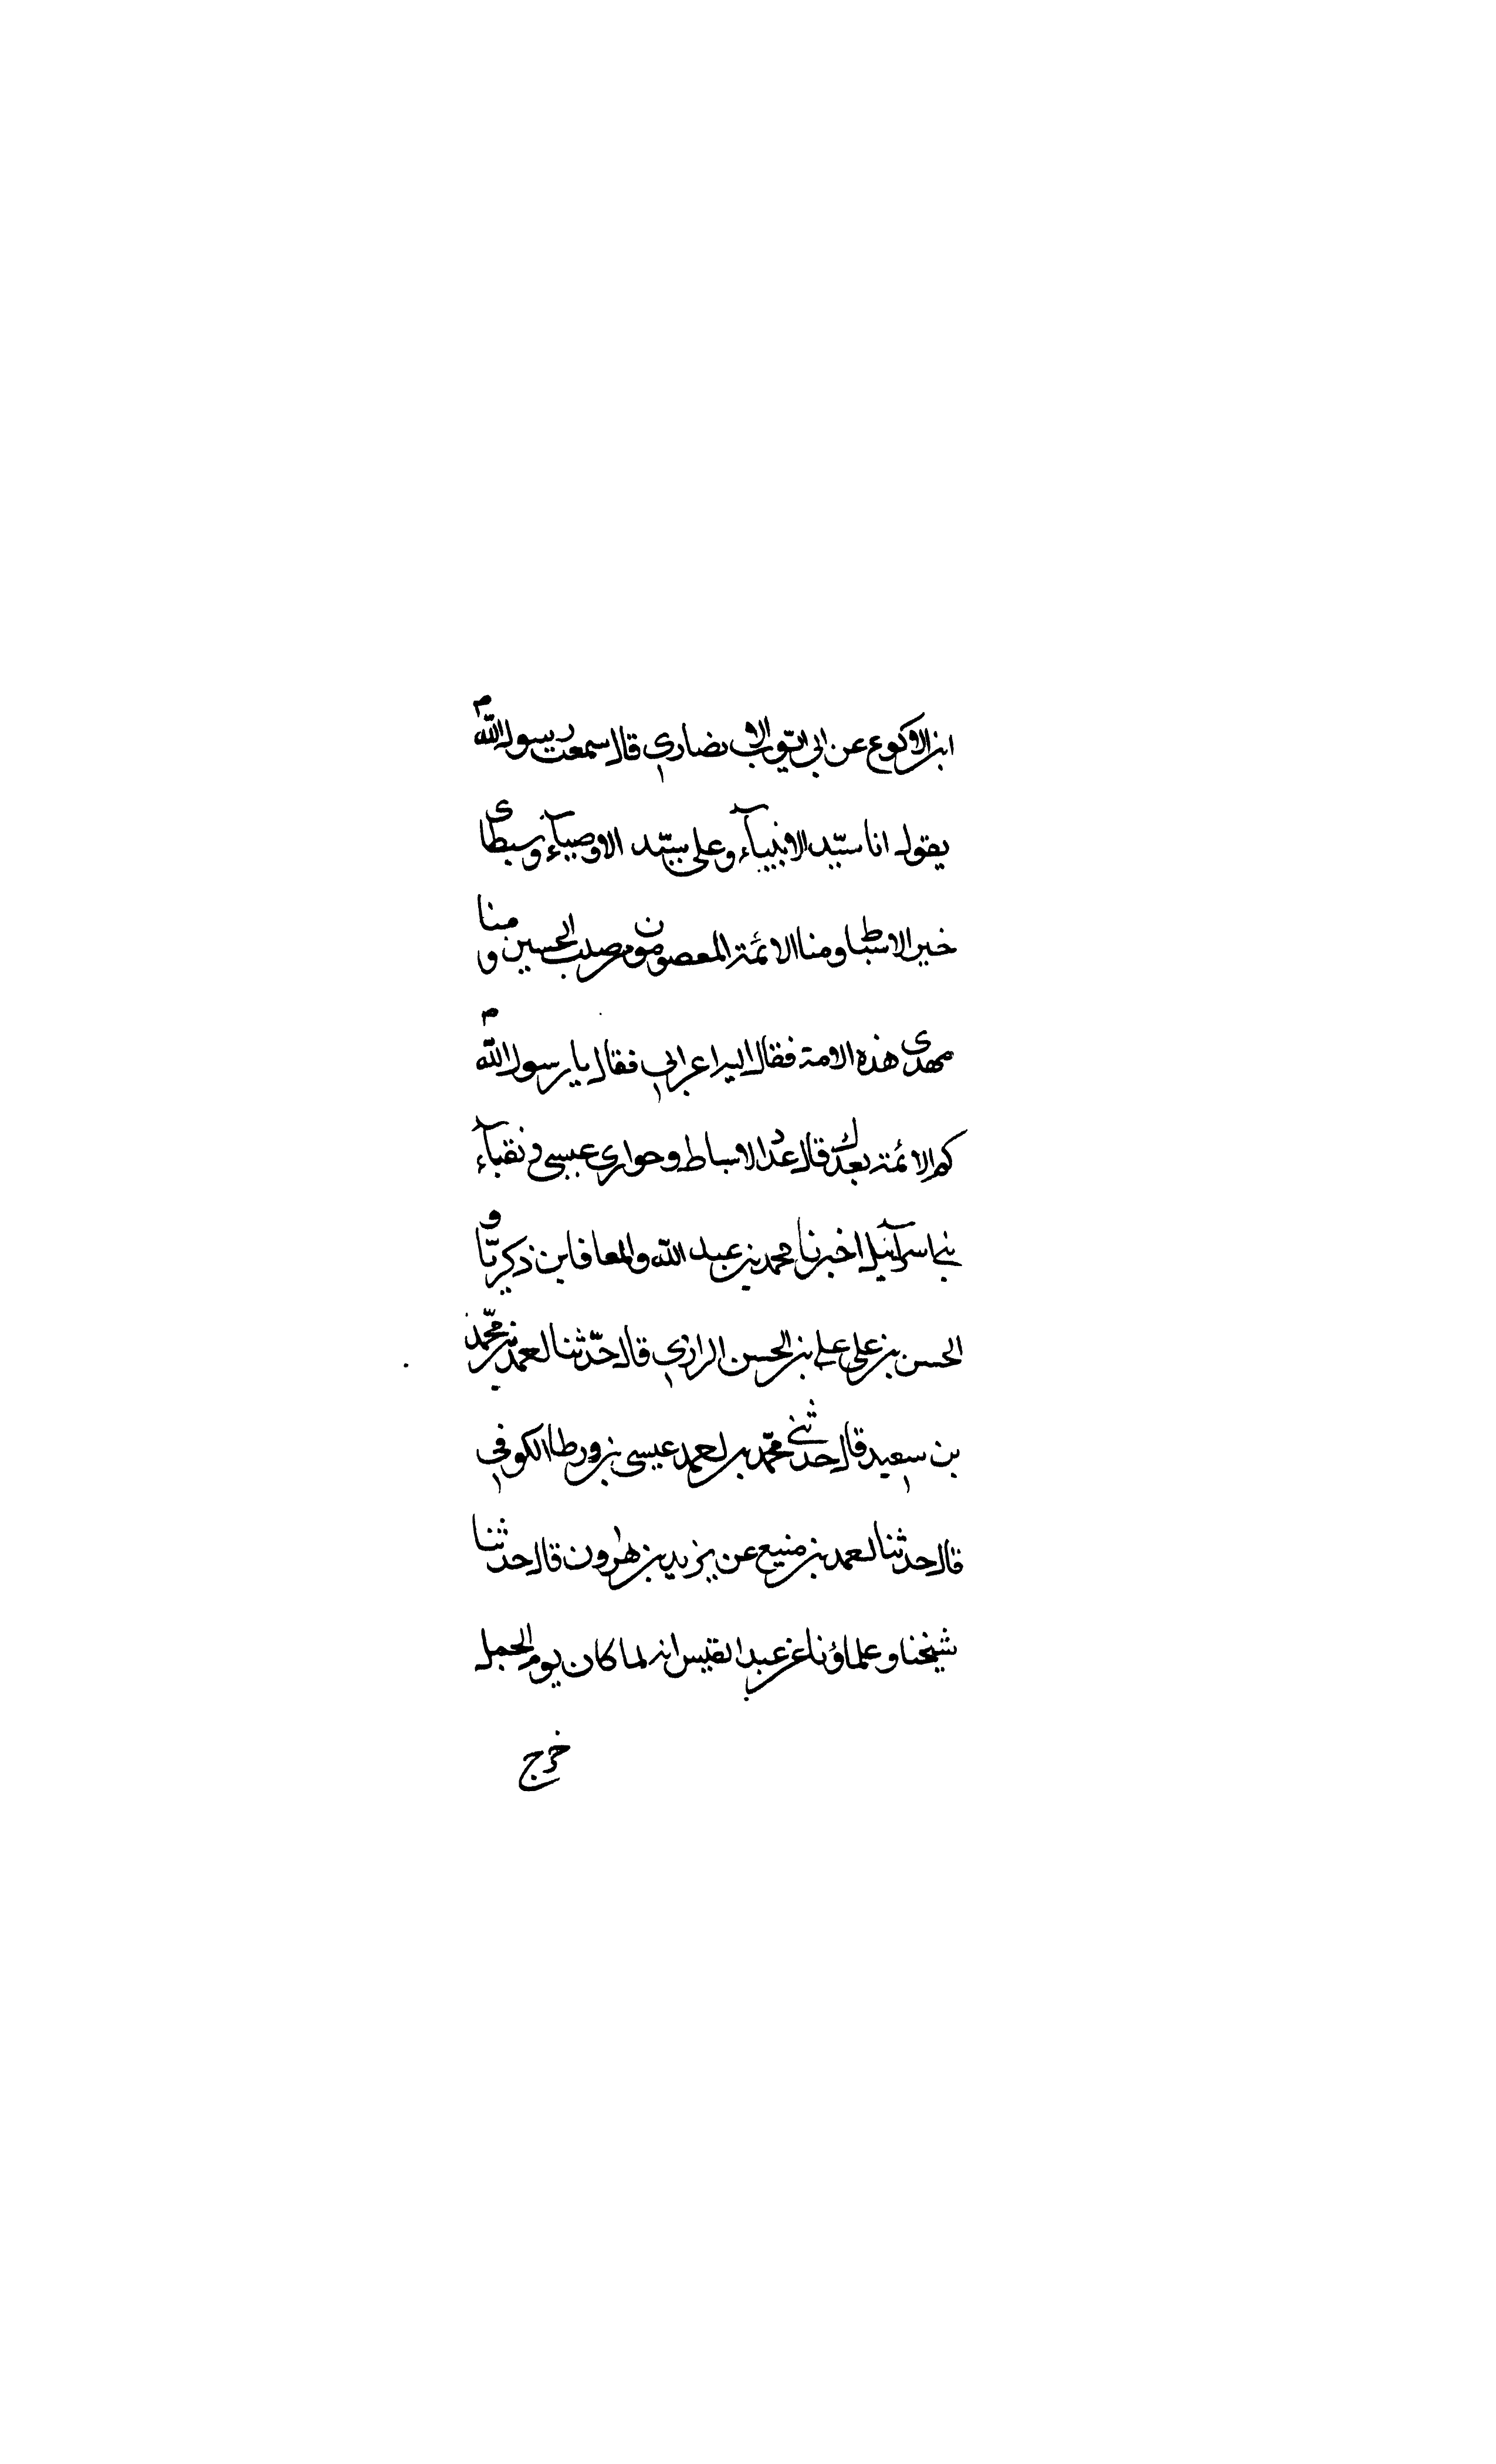 ابن الاكوع عن ابي ايّوب الانصاري قال سمعت رسول الله ص
يقول انا سيّد الانبيآء وعلى سيّد الاوصيآء وسبطاى
خير الاسباط ومنا الائمة المعصومون من صلب الحسين و منا
مهدى هذه الامة فقال اليه اعرابي فقال يا رسول الله ص
كم الائمة بعدك قال عدد الاسباط وحوارى عيسى و نقبآء
بنى اسرآئيل اخبرنا محمد بن عبد الله والمعافا بن زكريّا و
الحسن بن على على بن الحسن الرازي قال حدّثنا احمد بن محمّد
بن سعيد قال حدثنى محمّد بن احمد عيسى بن ورطا الكوفي
قال حدثنا احمد بن منيع عن يزيد بن هرون قال حدثنا
شيخنا وعلماؤنا عن عبد القيس انه لما كان يوم الجمل
خرج